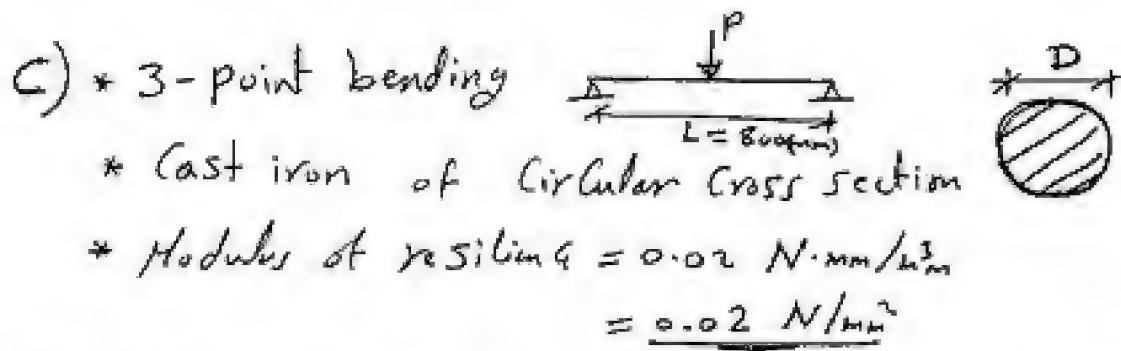 P
C) * 3-point bending
D
L = 800(mm)
* Cast iron of Circular Cross section
* Modulus of resilinq = 0.02 N.mm/mm³
= 0.02 N/mm²